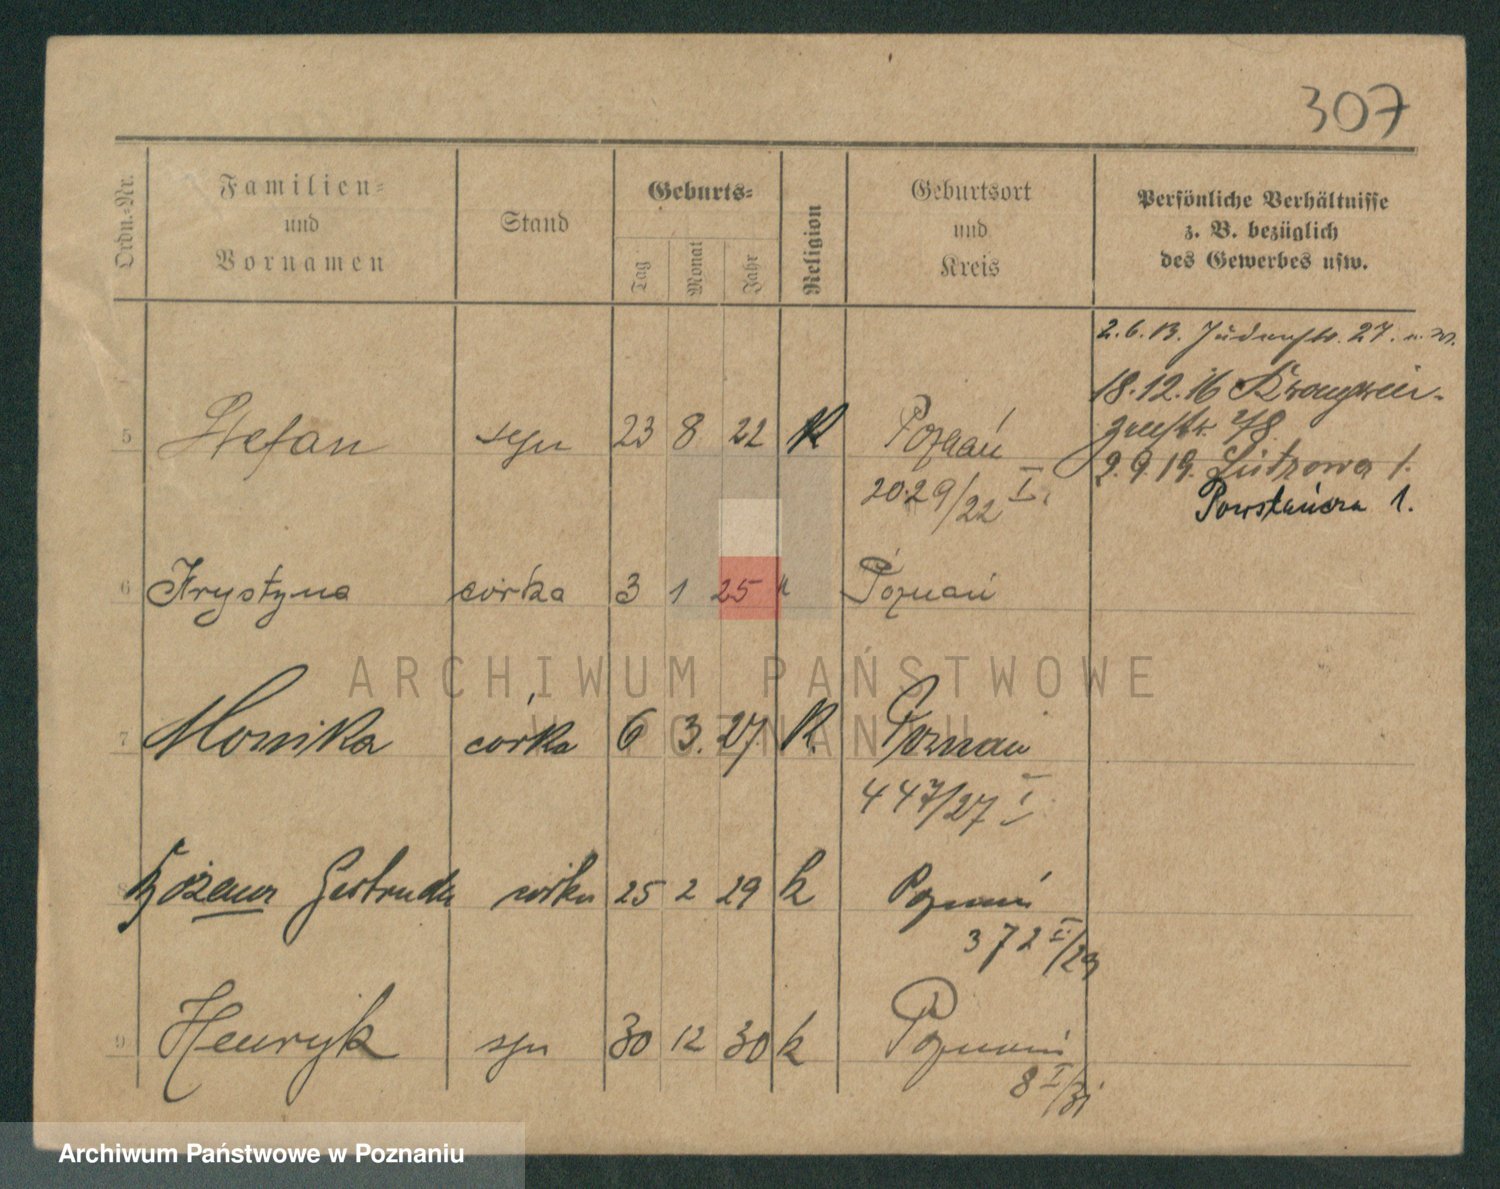 307
Ordn.-Nr.
Familien-
und
Vornamen
Stand
Geburts-
Tag
Monat
Jahr
Religion
Geburtsort
und
Kreis
Persönliche Verhältnisse
z. B. bezüglich
des Gewerbes usw.
2.6.13. Judenstr. 27.
18.12.16
2.9.19. Lützowa 1.
Powstańcza 1.
5 Stefan syn 23 8 22 K Poznań
2029/22 I.
6 Krystyna córka 3 1 25 " Poznań
7 Monika córka 6 3. 27. K. Poznań
447/27 I
8 Bożena Gertruda córka 25 2 29 k Poznań
372 I/29
9 Henryk syn 30 12 30 k Poznań
8 I/31
ARCHIWUM PAŃSTWOWE
W POZNANIU
Archiwum Państwowe w Poznaniu